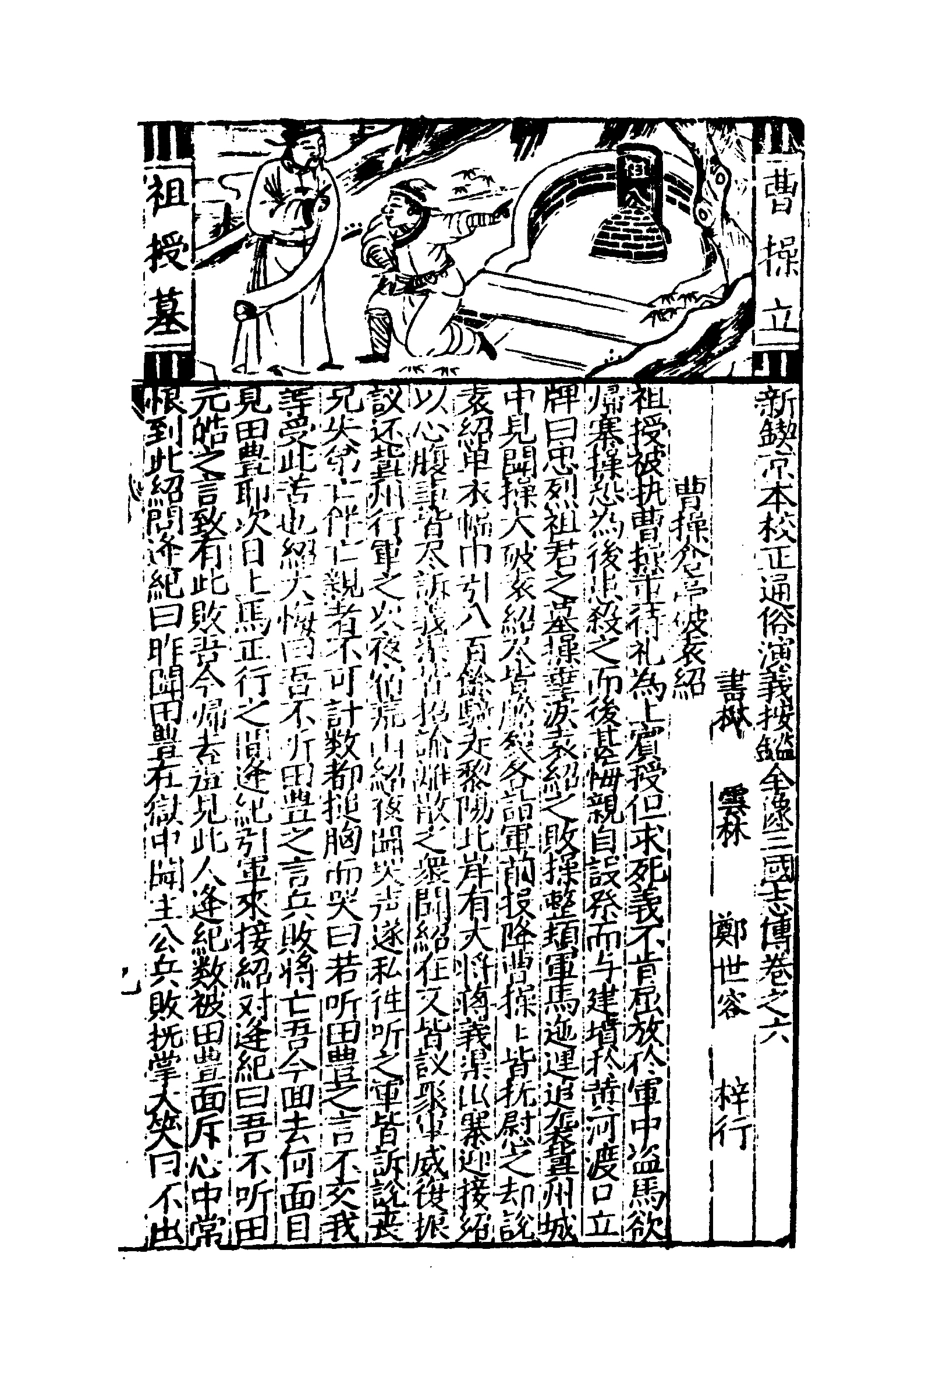 曹操立
祖授墓
新鍥京本校正通俗演義按鑑全像三國志傳卷之六
書林 雲林 鄭世容 梓行
曹操倉亭破袁紹
祖授被执曹操待礼為上賓授但求死義不肯屈放於軍中盜馬欲
歸寨操恐為後患殺之而後甚悔親自設祭而与建墳於黄河渡口立
牌曰忠烈祖君之墓操垂淚袁紹之敗操整頓軍馬迤逦追袭冀州城
中見聞操大破袁紹各詣軍前投降曹操上皆抚慰之却說
袁紹单衣幅巾引八百餘騎走黎陽北岸有大将蒋義渠出寨迎接紹
以心腹事皆尽訴義渠招諭離散之衆聞紹在又皆議聚軍威復振
議还冀州行軍之次夜宿荒山紹夜聞哭声遂私往听之軍皆訴說丧
兄失弟亡伴亡親者不可計数都搥胸而哭曰若听田豊之言不交我
等受此苦也紹大悔曰吾不听田豊之言兵敗将亡吾今面去何面目
見田豊耶次日上馬正行之間逢紀引軍來接紹对逢紀曰吾不听田
元皓之言致有此敗吾今帰去羞見此人逢紀数被田豊面斥心中常
恨到此紹問逢紀曰昨聞田豊在獄中聞主公兵敗抚掌大笑曰不出